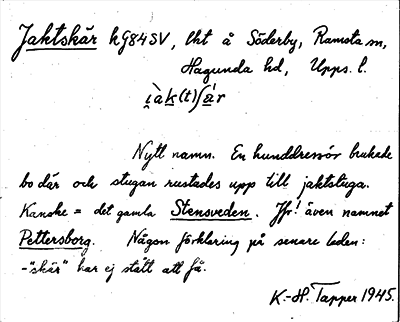 Jaktskär hG84SV, lht å Söderby, Ramsta sn,
Hagunda hd, Upps. l.
i̯àk(t)ʃár
Nytt namn. En hunddressör brukade
bo där och stugan rustades upp till jaktstuga.
Kanske = det gamla Stensveden. Jfr! även namnet
Pettersborg. Någon förklaring på senare leden:
-"skär" har ej stått att få.
K.-H. Tapper 1945.